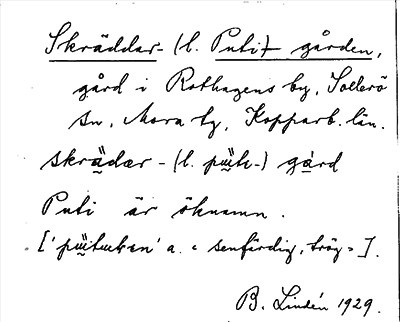 Skräddar- (l. Puti)- gården,
gård i Rothagens by, Sollerö
sn, Mora tg, Kopparb. län.
skrädær- (l. püt-) gård
Puti är öknamn.
['pütukən' a. "senfärdig, trög"].
B. Lindén 1929.